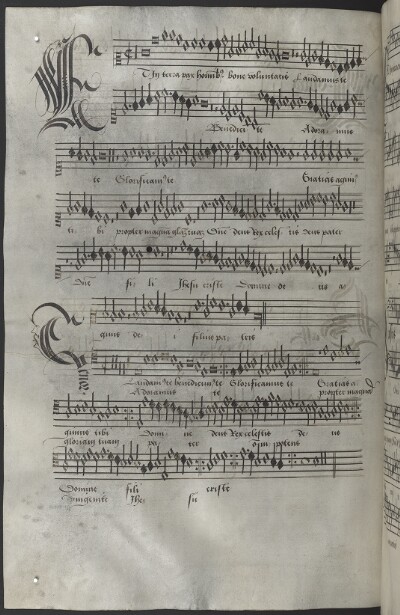 Et in terra pax hominibꝰ bone voluntatis Laudamus te
Benedicimꝰ te Adoramus
te Glorificamꝰ te Gratias agimꝰ
ti bi propter magnā gloriā Dne deus Rex celes tis Deus pater
Dne fi li Jhesu criste Domine de us a
gnus de i filius pa tris
Laudamꝰ te benedicimꝰ te Glorificamus te Gratias a
Adoramus te propter magnā
gimus tibi Domi ne deus Rex celestis de us
gloriam tuam pa ter omnipotens
Domine fili criste
Unigenite Jhe su